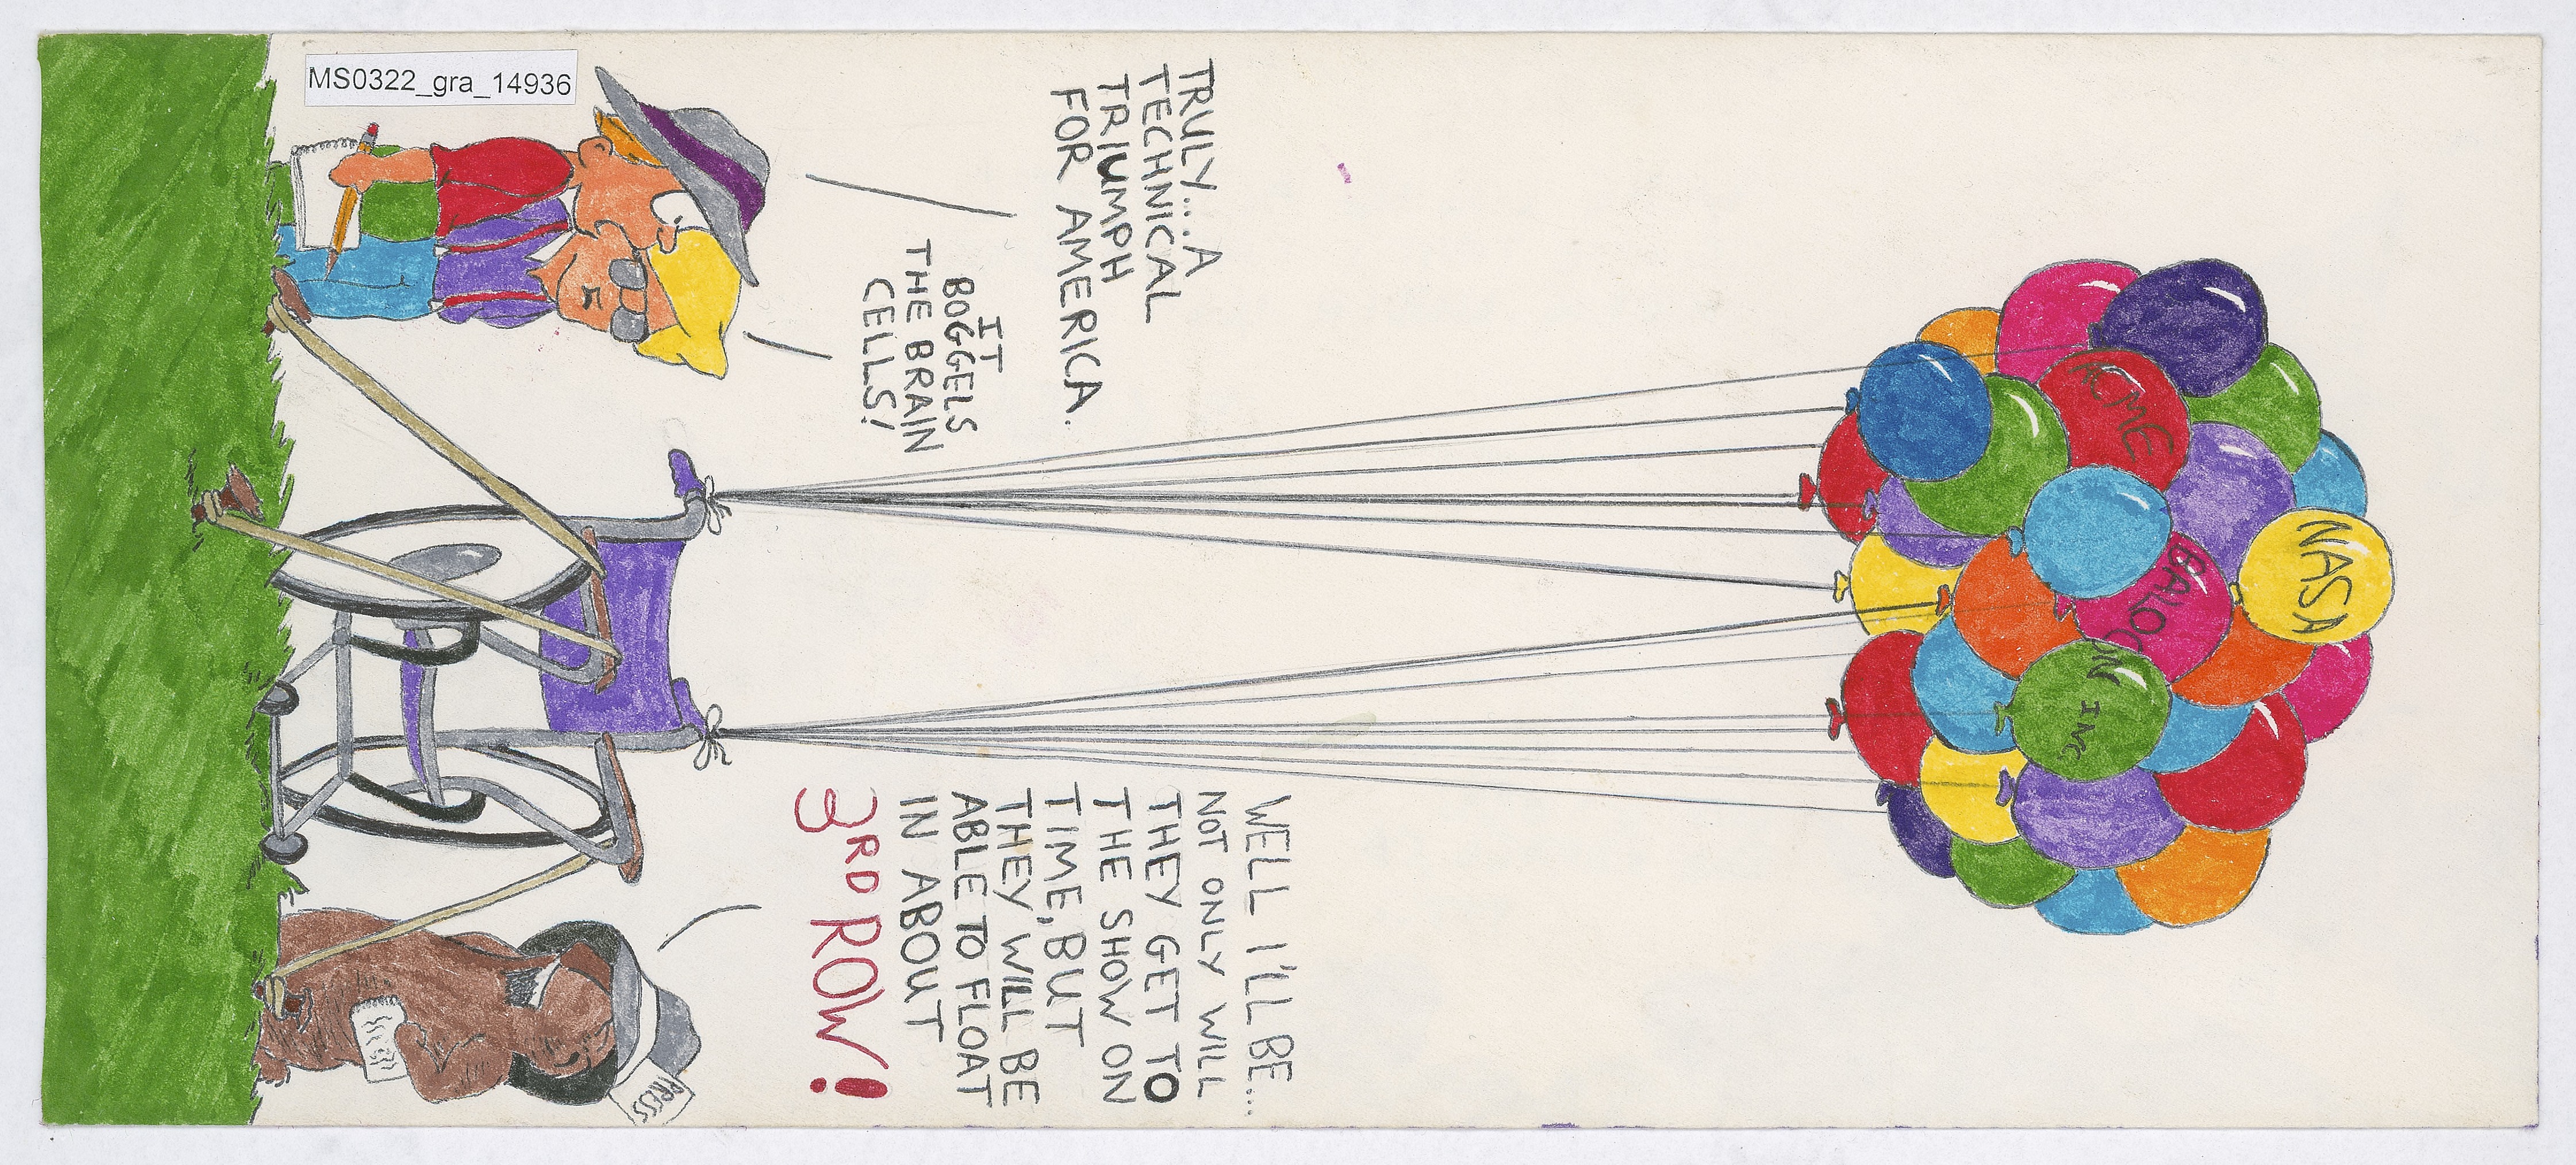 MS0322_gra_14936
NASA
ACME
BALOON INC
TRULY.... A
TECHNICAL
TRIUMPH
FOR AMERICA.
IT
BOGGELS
THE BRAIN
CELLS!
WELL I'LL BE....
NOT ONLY WILL
THEY GET TO
THE SHOW ON
TIME, BUT
THEY WILL BE
ABLE TO FLOAT
IN ABOUT
3RD ROW!
PRESS